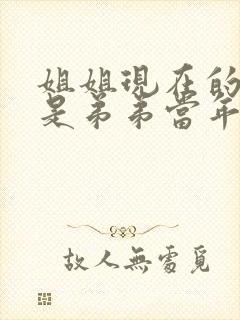 姐姐現在的
是弟弟當年
故人無處覓